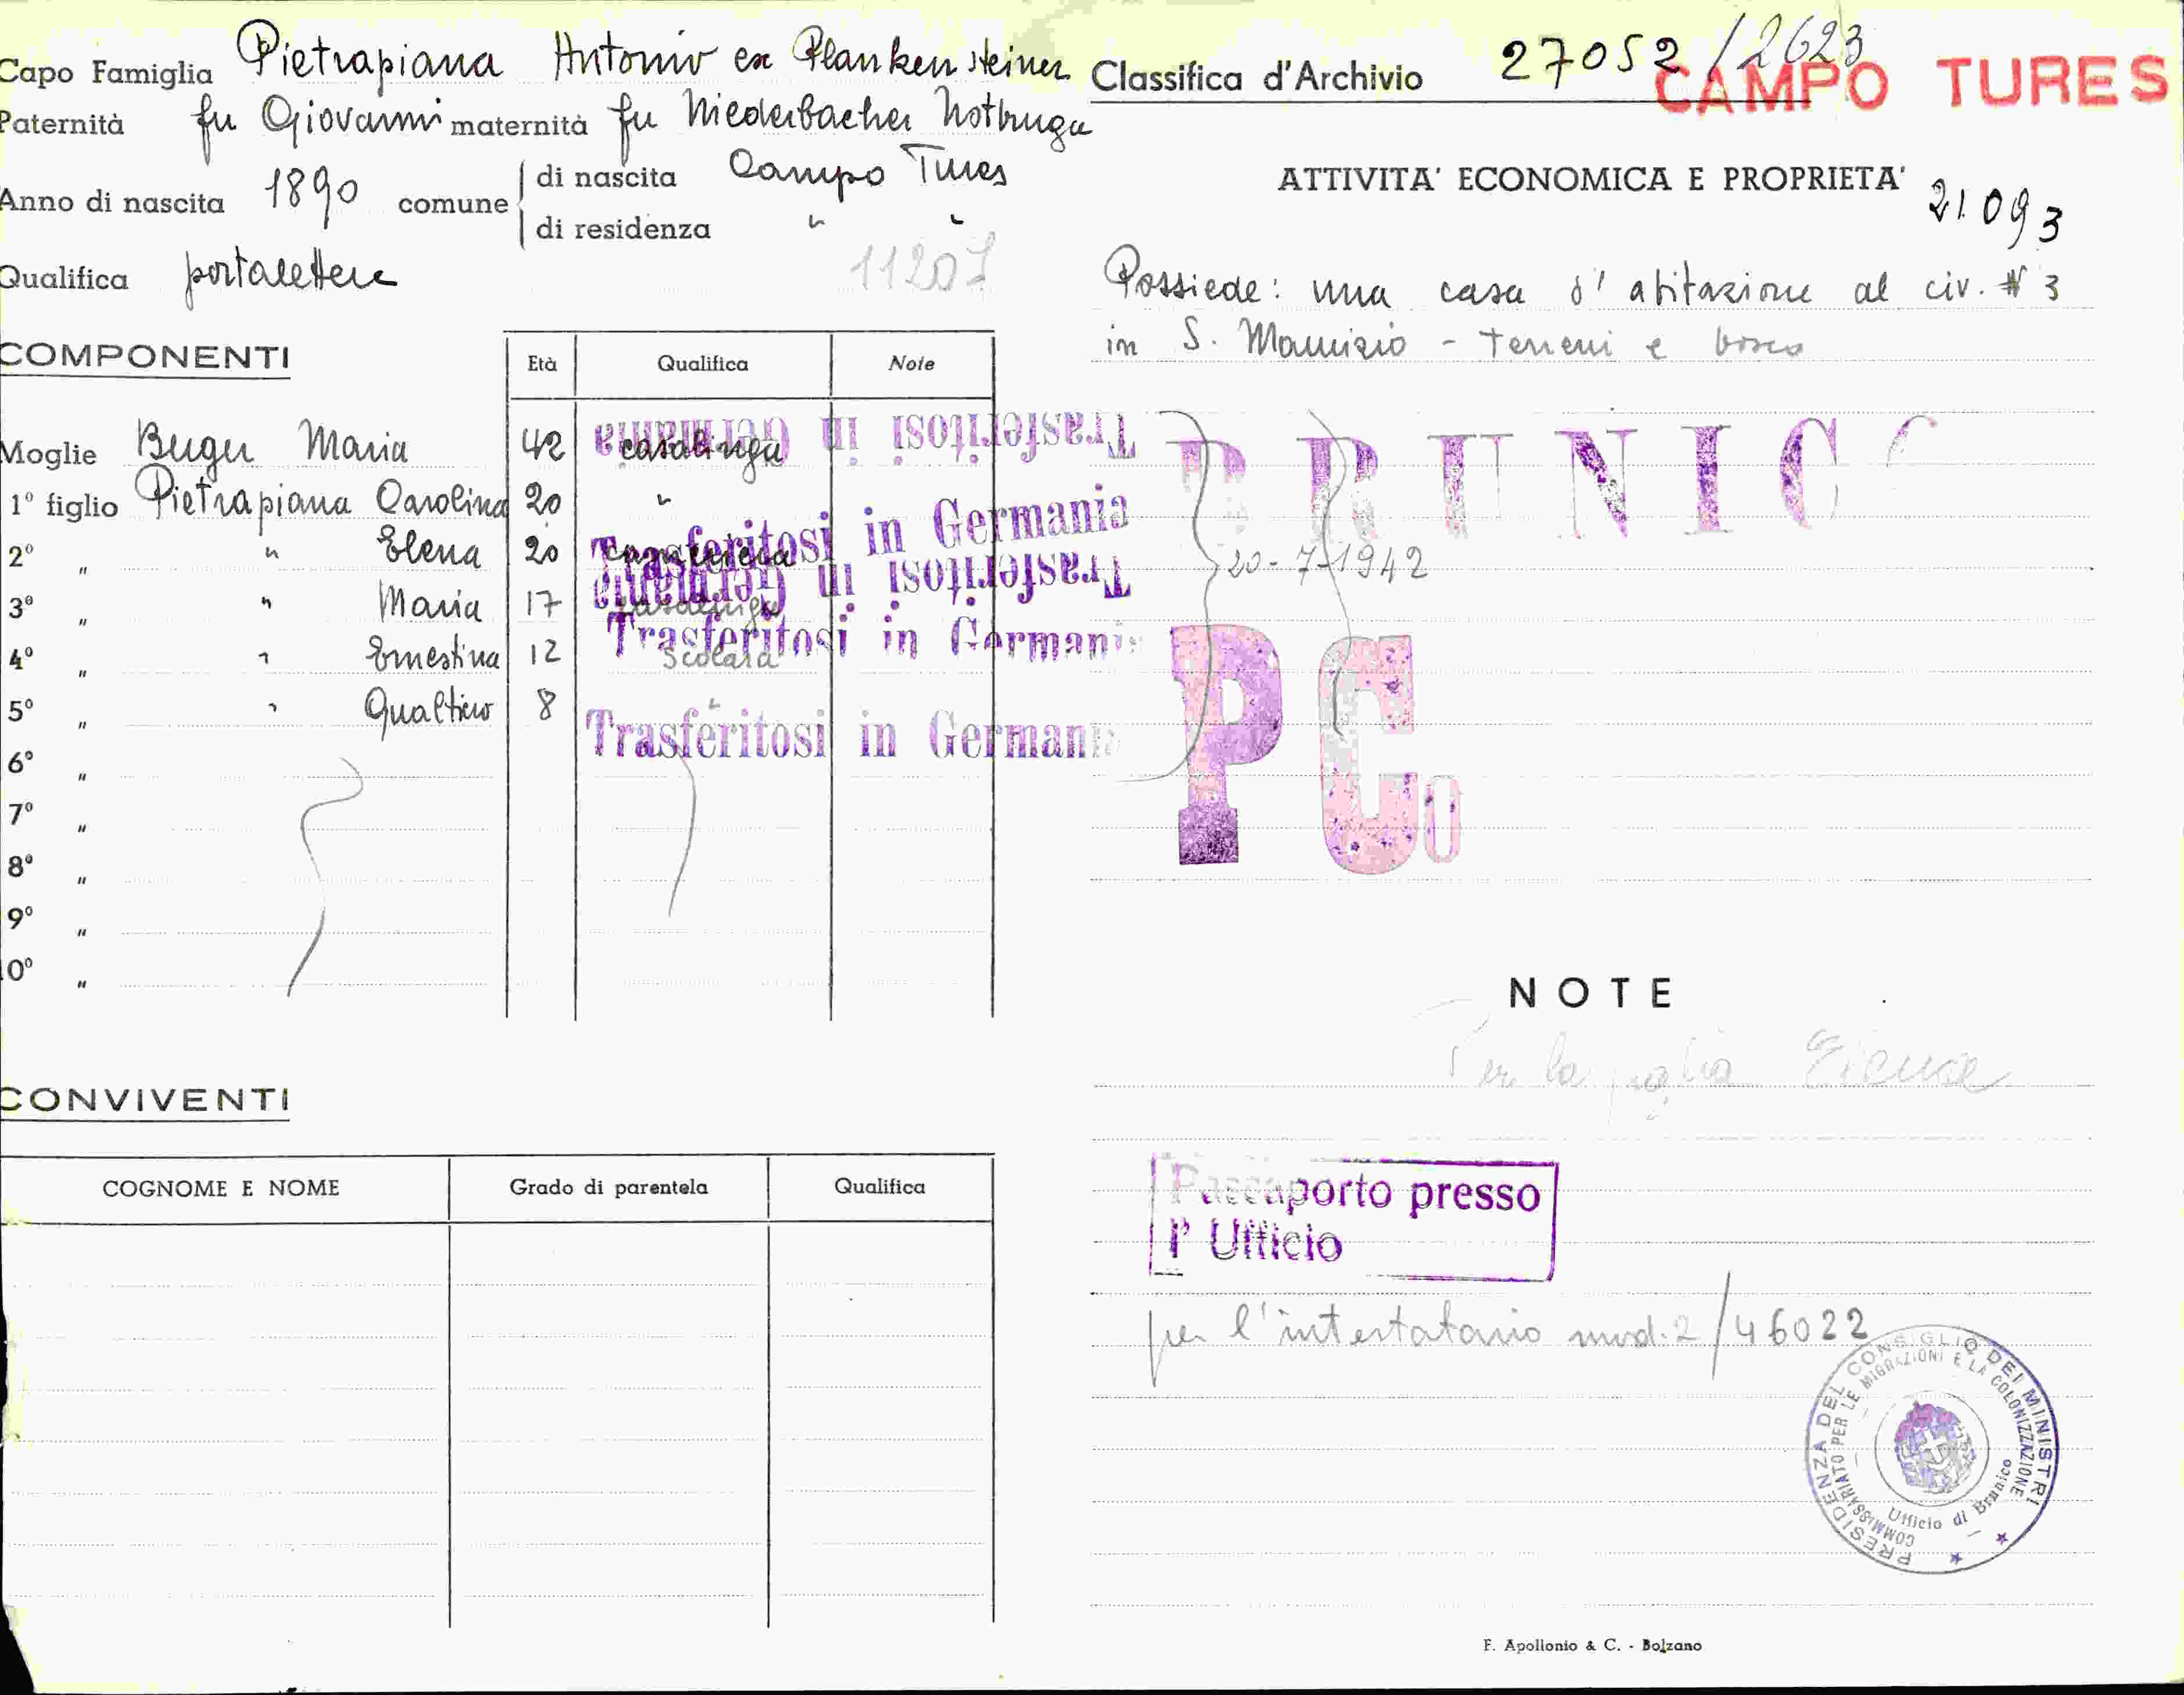 Capo Famiglia Pietrapiana Antonio ex Plankensteiner
Paternità fu Giovanni maternità fu Niederbacher Notburga
Anno di nascita 1890 comune di nascita Campo Tures
di residenza " "
11207
Qualifica portalettere
COMPONENTI
Età Qualifica Note
Moglie Maria 42 casalinga
Trasferitosi in Germania
1º figlio Pietrapiana Carolina 20 "
Trasferitosi in Germania
2º " " Elena 20
Trasferitosi in Germania
3º " " Maria 17 casalinga
Trasferitosi in Germania
4º " " Ernestina 12 scolara
5º " " Gualtiero 8 "
Trasferitosi in Germania
6º "
7º "
8º "
9º "
0º "
CONVIVENTI
COGNOME E NOME Grado di parentela Qualifica
Classifica d'Archivio 27052/2623
CAMPO TURES
ATTIVITA' ECONOMICA E PROPRIETA'
21093
Possiede: una casa d'abitazione al civ. N 3
in S. Maurizio - terreni e bosco
BRUNICO
20-7-1942
PCo
NOTE
Per la figlia
Passaporto presso
l'Ufficio
per l'intestatario mod. 2/46022
PRESIDENZA DEL CONSIGLIO DEI MINISTRI
COMMISSARIATO PER LE MIGRAZIONI E LA COLONIZZAZIONE
Ufficio di Brunico
F. Apollonio & C. - Bolzano